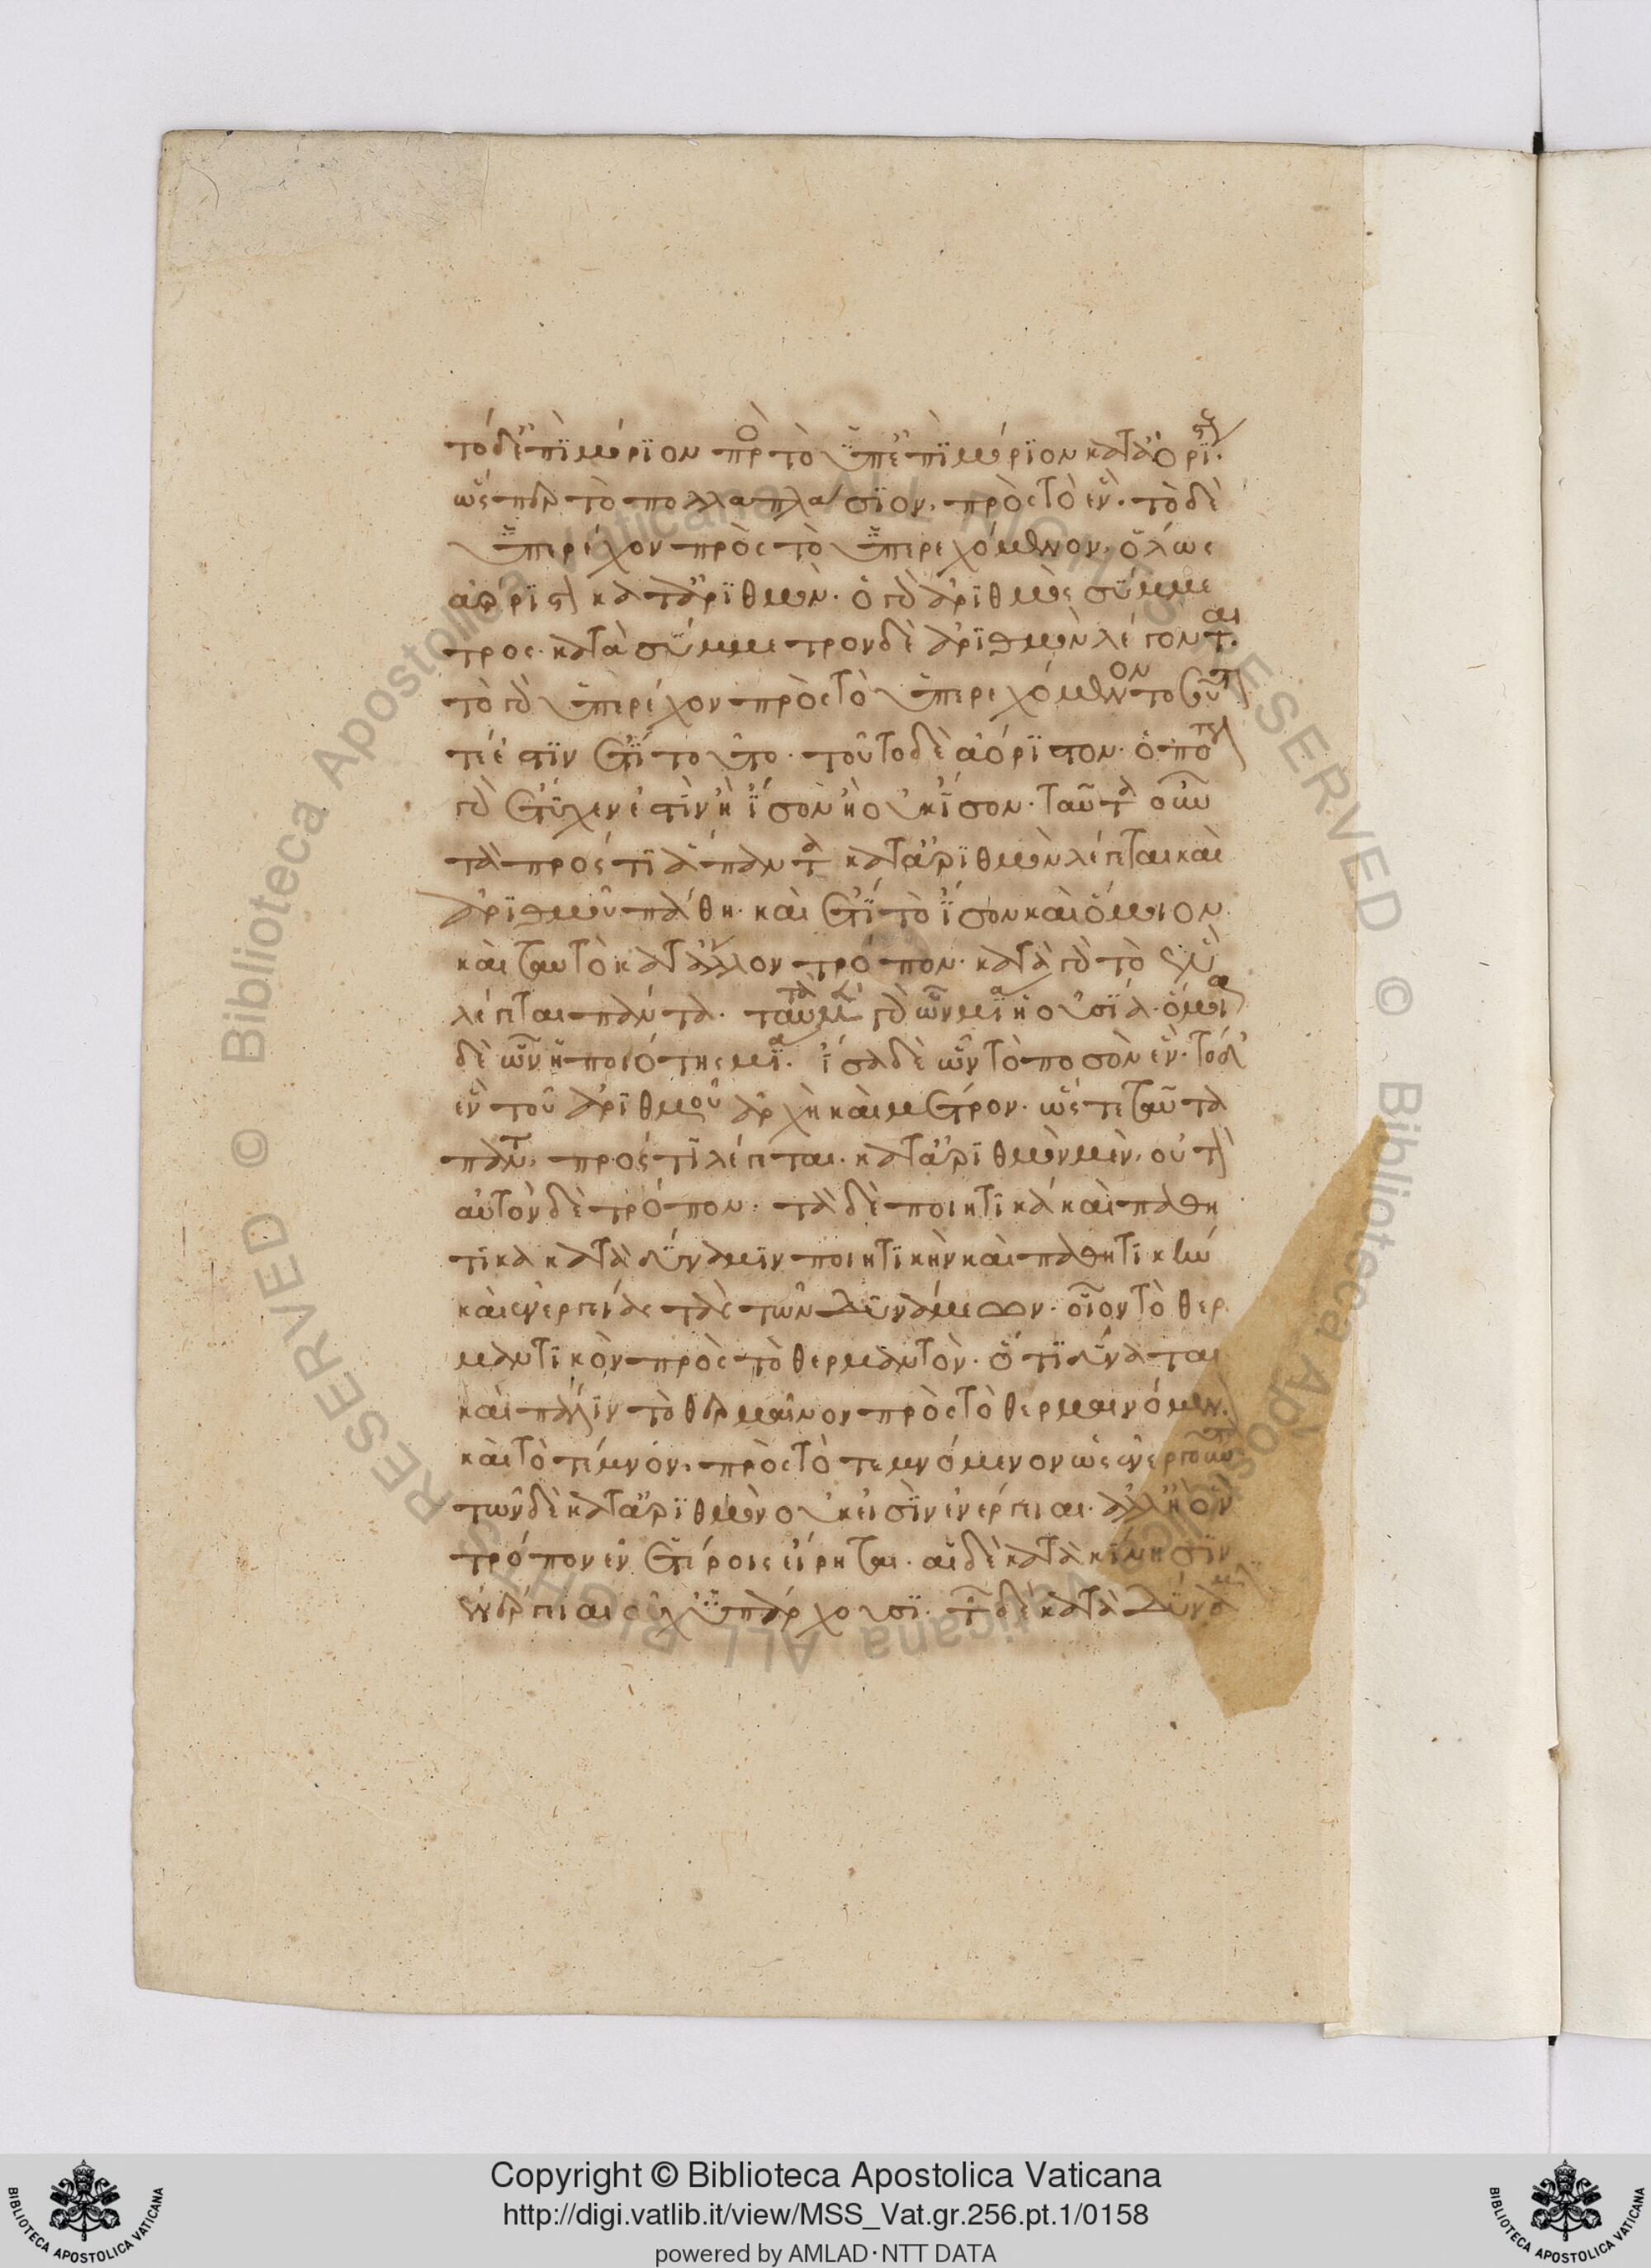 τὸ δ' ἐπιμόριον πρὸς τὸ ὑπεπιμόριον κατὰ ἀόριστον
ὥσπερ τὸ πολλαπλάσιον πρὸς τὸ ἕν. τὸ δὲ
ὑπερέχον πρὸς τὸ ὑπερεχόμενον. ὅλως
ἀόριστον κατ' ἀριθμόν. ὁ γὰρ ἀριθμὸς σύμμε
τρος. κατὰ σύμμετρον δὲ ἀριθμὸν λέγονται.
τὸ γὰρ ὑπερέχον πρὸς τὸ ὑπερεχόμενον τοσοῦτον
τέ ἐστιν ἔτι τοῦτο. τοῦτο δὲ ἀόριστον. ὁπότερον
γὰρ ἔτυχεν ἐστὶν ἢ ἴσον ἢ οὐκ ἴσον. ταῦτα οὖν
τὰ πρός τι ἅπαντα κατ' ἀριθμὸν λέγεται καὶ
ἀριθμοῦ πάθη. καὶ ἔτι τὸ ἴσον καὶ ὅμοιον
καὶ ταυτὸ κατ' ἄλλον τρόπον. κατὰ γὰρ τὸ ἓν
λέγεται πάντα. ταυτὰ μὲν γὰρ ὧν μία ἡ οὐσία. ὅμοια
δὲ ὧν ἡ ποιότης μία. ἴσα δὲ ὧν τὸ ποσὸν ἕν. τὸ δ'
ἓν τοῦ ἀριθμοῦ ἀρχὴ καὶ μέτρον. ὥστε ταῦτα
πάντα πρός τι λέγεται. κατ' ἀριθμὸν μὲν, οὐ τὸν
αὐτὸν δὲ τρόπον. τὰ δὲ ποιητικὰ καὶ παθη
τικὰ κατὰ δύναμιν ποιητικὴν καὶ παθητικὴν
καὶ ἐνεργείας τὰς τῶν δυνάμεων. οἷον τὸ θερ
μαντικὸν πρὸς τὸ θερμαντὸν. ὅτι δύναται
καὶ πάλιν τὸ θερμαῖνον πρὸς τὸ θερμαινόμενον.
καὶ τὸ τέμνον, πρὸς τὸ τεμνόμενον ὡς ἐνεργοῦντα
τῶν δὲ κατ' ἀριθμὸν οὐκ εἰσὶν ἐνέργειαι. ἀλλ' ἢ ὃν
τρόπον ἐν ἑτέροις εἴρηται. αἱ δὲ κατὰ κίνησιν
ἐνέργειαι οὐχ ὑπάρχουσι. τῶν δὲ κατὰ δύναμιν
Copyright © Biblioteca Apostolica Vaticana
http://digi.vatlib.it/view/MSS_Vat.gr.256.pt.1/0158
powered by AMLAD·NTT DATA